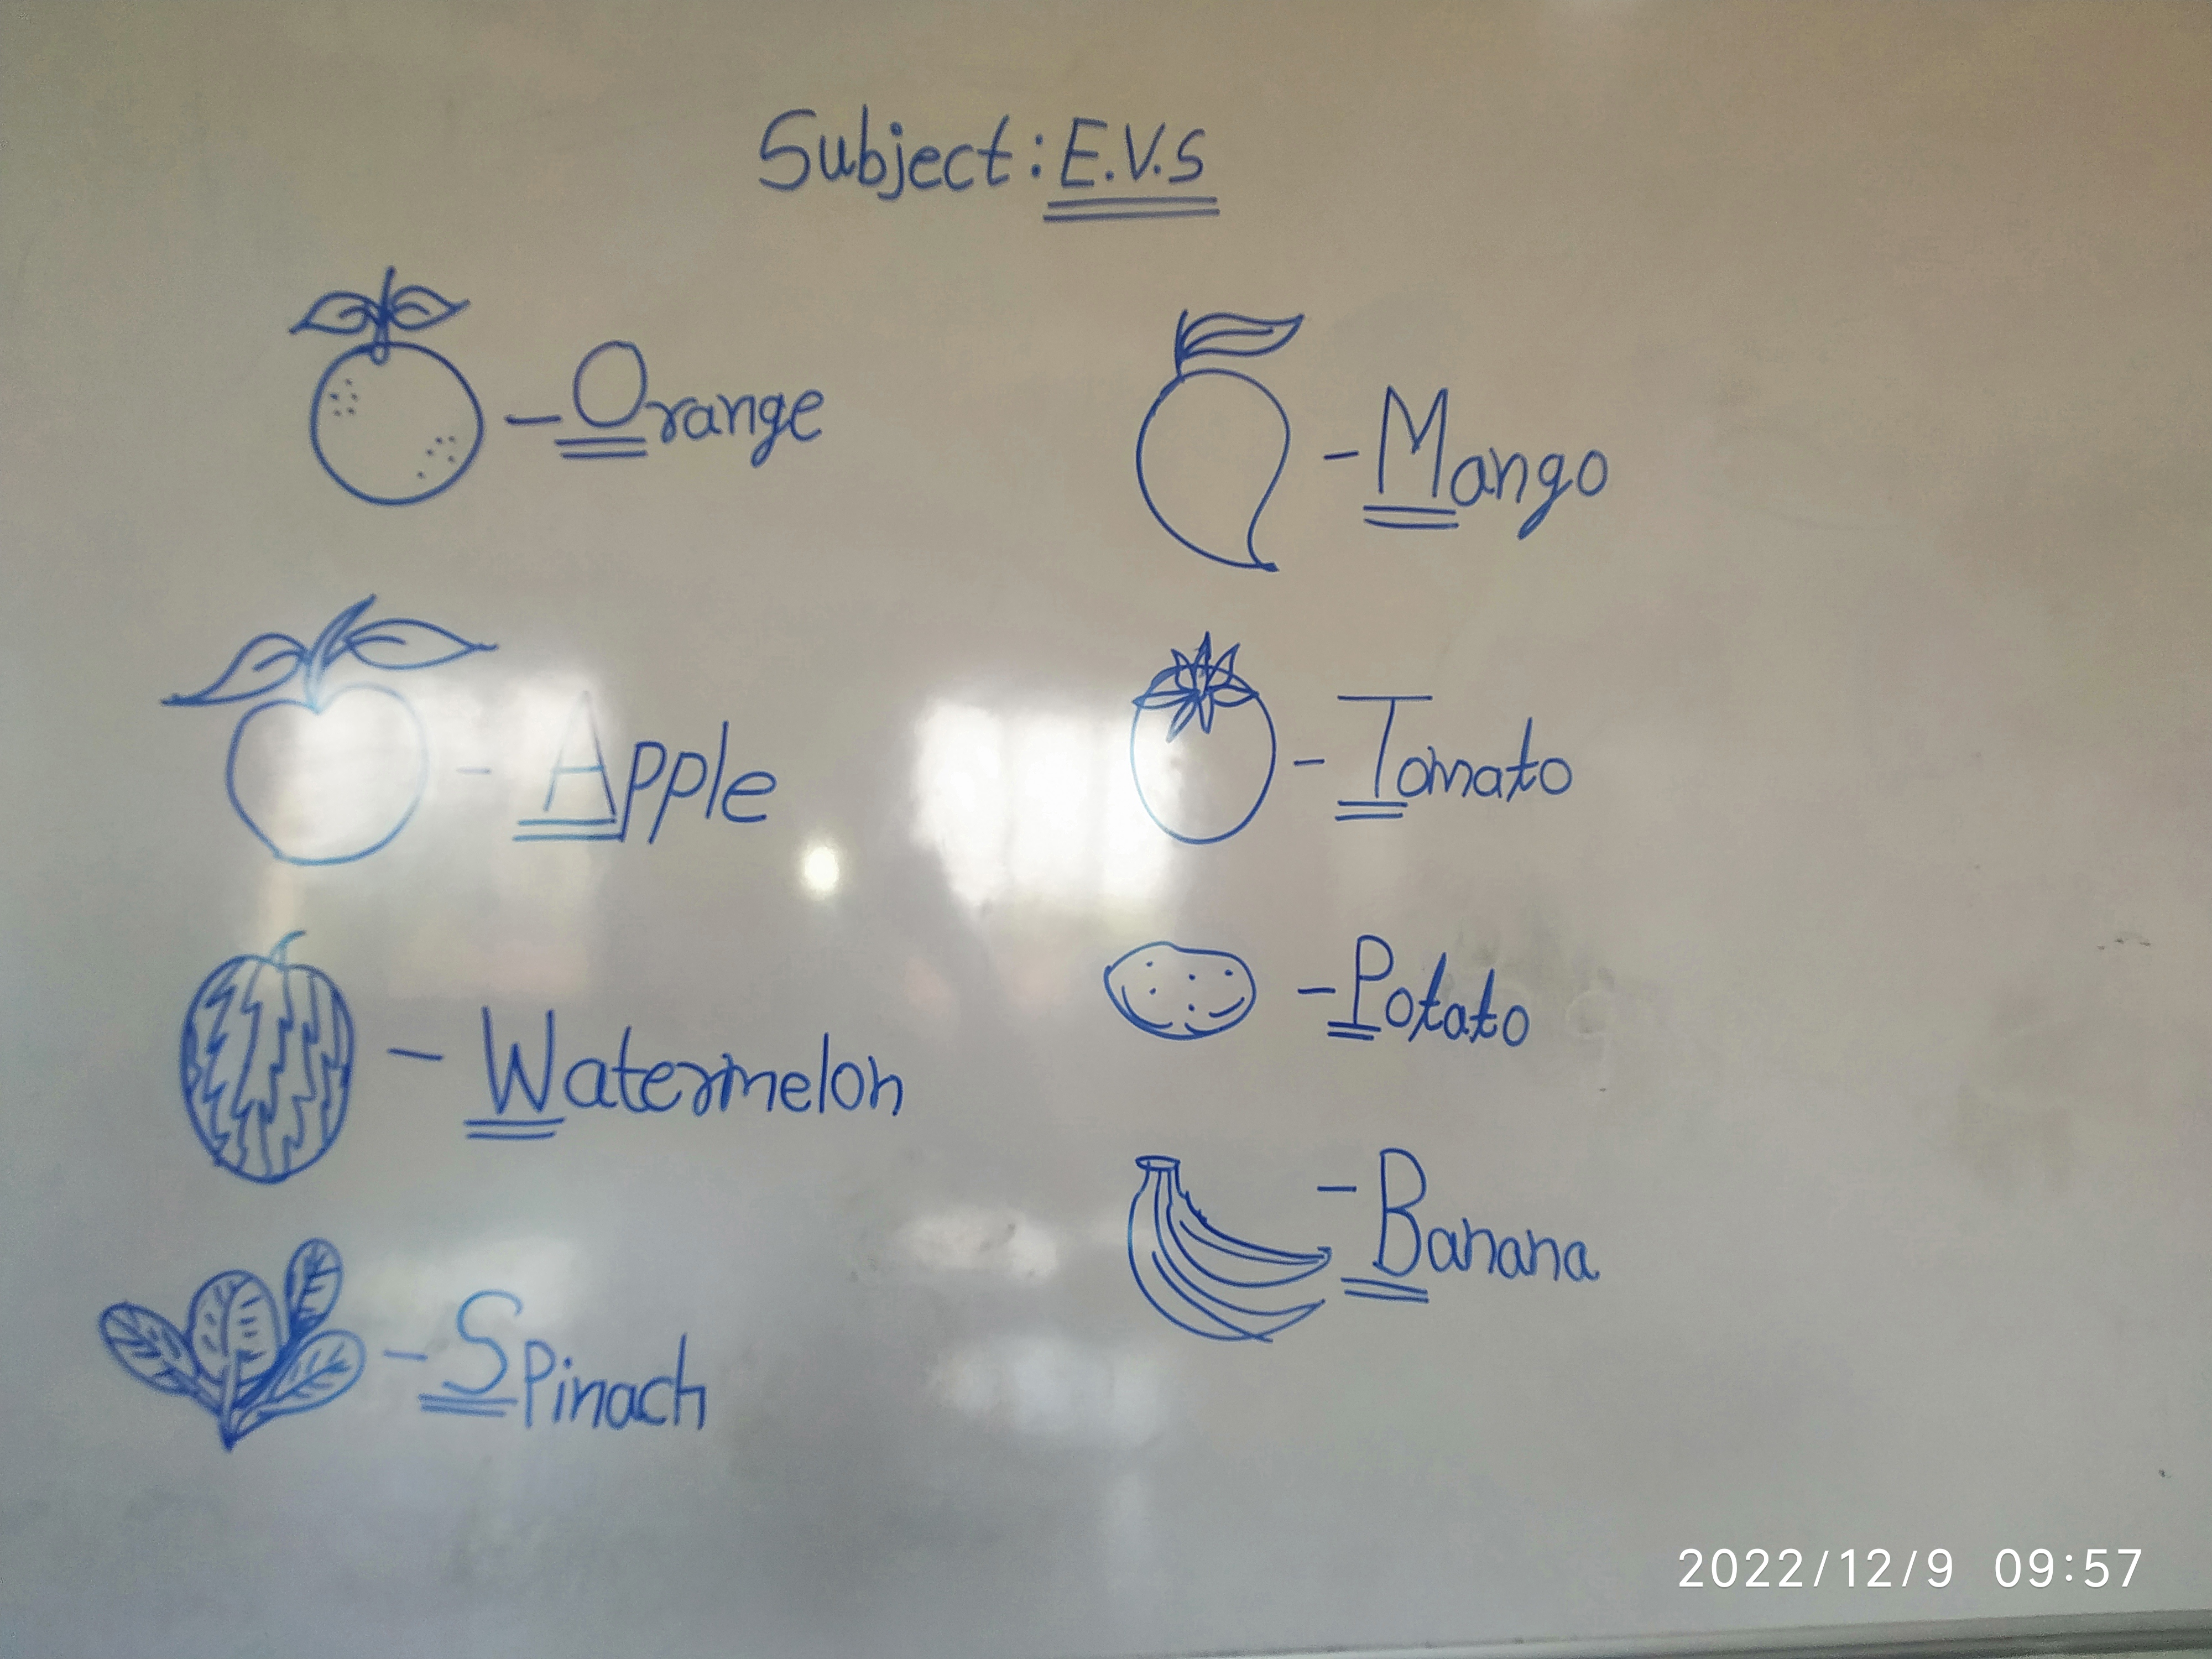 Subject: E.V.S
- Orange
- Mango
- Apple
- Tomato
- Watermelon
- Potato
- Banana
- Spinach
2022/12/9 09:57